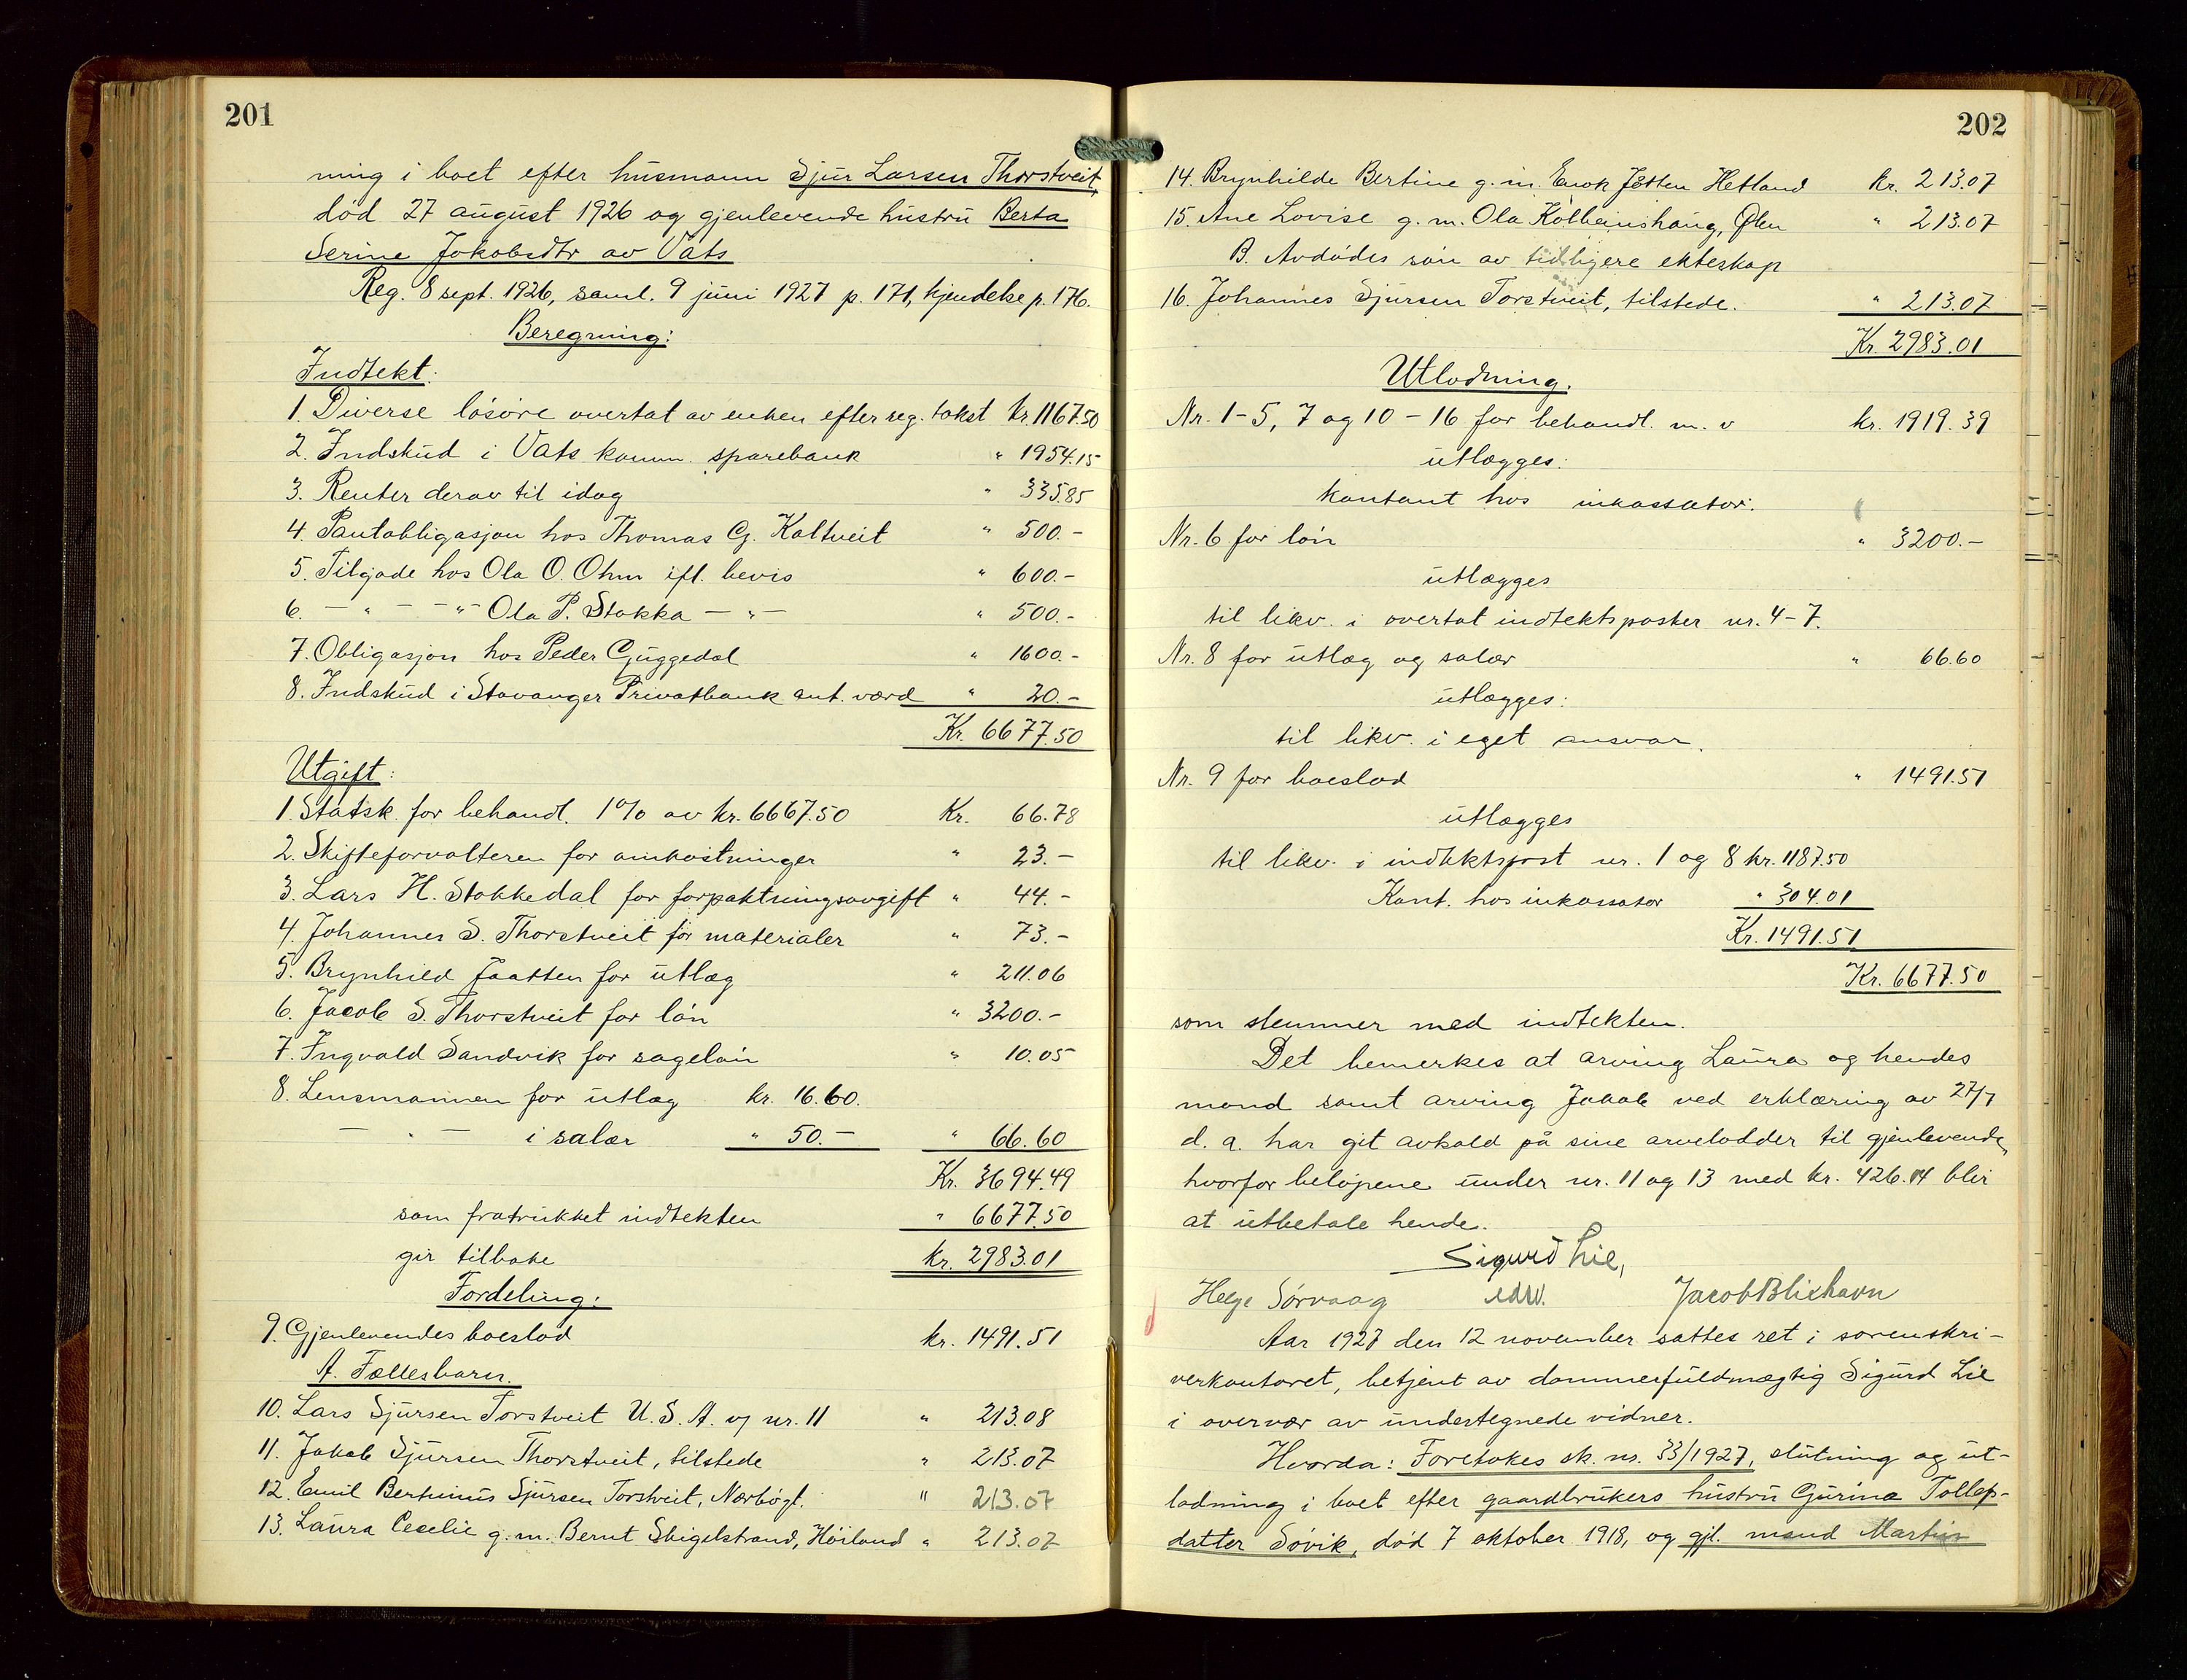 201
ning i boet efter husmann Sjur Larsen Thorstveit,
död 27 august 1926 og gjenlevende hustru Berta
Serine Jakobsdtr av Vats
Reg. 8 sept. 1926, saml. 9 juni 1927 p. 171, kjendelse p. 176.
Beregning:
Indtekt:
1. Diverse lösöre overtat av enken efter reg. takst kr. 1167.50
2. Indskud i Vats komm. sparebank " 1954.15
3. Renter derav til idag " 335.85
4. Pantobligasjon hos Thomas G. Kaltveit " 500.-
5. Tilgode hos Ola O. Ohm ifl. bevis " 600.-
6. - " - - " - Ola P. Stakka - " - " 500.-
7. Obligasjon hos Peder Guggedal " 1600.-
8. Indskud i Stavanger Privatbank ant. værd " 20.-
Kr. 6677.50
Utgift:
1. Statsk. for behandl. 1% av kr. 6667.50 Kr. 66.78
2. Skifteforvalteren for omkostninger " 23.-
3. Lars H. Stakkedal for forpaktningsavgift " 44.-
4. Johannes S. Thorstveit for materialer " 73.-
5. Brynhild Jaatten for utlæg " 211.06
6. Jacob S. Thorstveit for lön " 3200.-
7. Ingvald Sandvik for sagelön " 10.05
8. Lensmannen for utlæg kr. 16.60.
- " - i salær " 50.- " 66.60
Kr. 3694.49
som fratrukket indtekten " 6677.50
gir tilbake kr. 2983.01
Fordeling:
9. Gjenlevendes boeslod kr. 1491.51
A. Fællesbarn.
10. Lars Sjursen Torstveit U.S.A. v/ nr. 11 " 213.08
11. Jakob Sjursen Thorstveit, tilstede " 213.07
12. Emil Bertinius Sjursen Torstveit, Nærbögt. " 213.07
13. Laura Cecelie g.m. Bernt Skigelstrand, Höiland " 213.07
202
14. Brynhilde Bertine g.m. Enok Jåtten Hetland kr. 213.07
15. Ane Lovise g.m. Ola Kolbeinshaug, Ølen " 213.07
B. Avdödes sön av tidligere ekteskap
16. Johannes Sjursen Torstveit, tilstede. " 213.07
Kr. 2983.01
Utlodning.
Nr. 1-5, 7 og 10-16 for behandl. m. v kr. 1919.39
utlægges:
kontant hos inkassator.
Nr. 6 for lön " 3200.-
utlægges
til likv. i overtat indtektsposter nr. 4-7.
Nr. 8 for utlæg og salær " 66.60
utlægges:
til likv. i eget ansvar.
Nr. 9 for boeslod " 1491.51
utlægges
til likv. i indtektspost nr. 1 og 8 kr. 1187.50
Kont. hos inkassator " 304.01
Kr. 1491.51
Kr. 6677.50
som stemmer med indtekten.
Det bemerkes at arving Laura og hendes
mand samt arving Jakob ved erklæring av 27/7
d. a. har git avkald på sine arvelodder til gjenlevende,
hvorfor belöpene under nr. 11 og 13 med kr. 426.14 blir
at utbetale hende.
Sigurd Lie,
Helge Sörvaag edsv. Jacob Blixhavn
Aar 1927 den 12 november sattes ret i sorenskri-
verkontoret, betjent av dommerfuldmægtig Sigurd Lie
i overvær av undertegnede vidner.
Hvorda: Foretokes sk. nr. 33/1927, slutning og ut-
lodning i boet efter gaardbrukers hustru Gurina Tollep-
datter Sövik, död 7 oktober 1918, og gjl. mand Martin